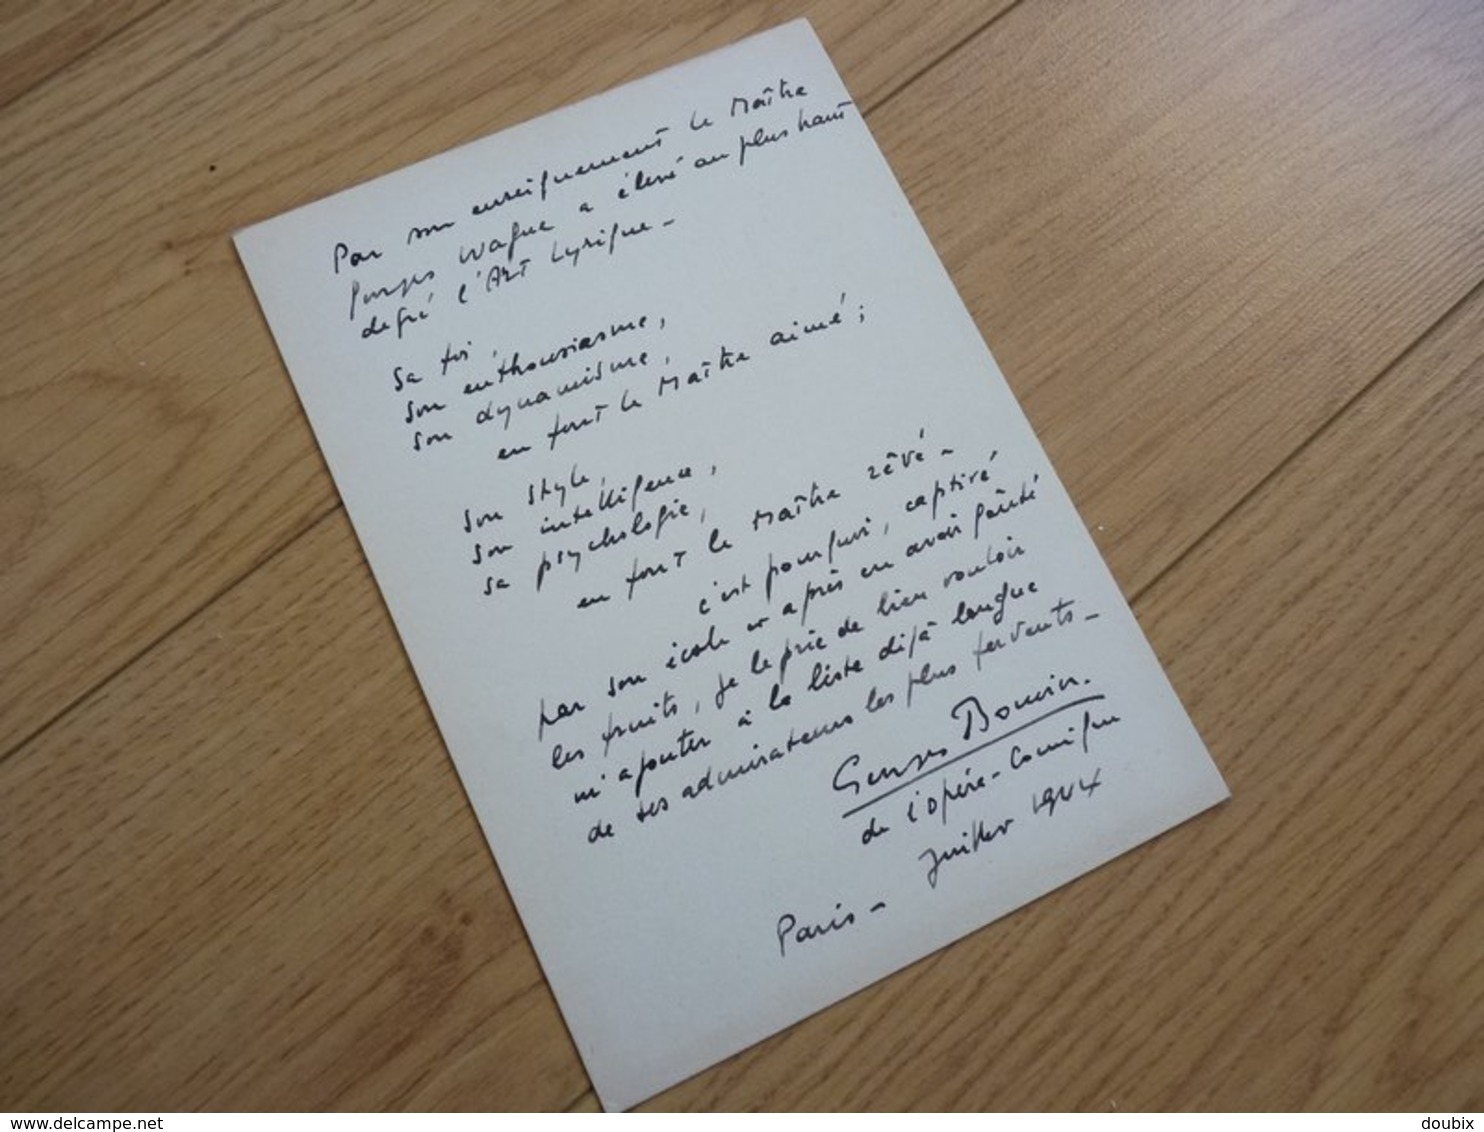 Par son enseignement le Maître
Georges Wague a élevé au plus haut
degré l'Art Lyrique -
Sa foi,
son enthousiasme,
son dynamisme,
en font le Maître aimé ;
Son style,
son intelligence,
sa psychologie,
en font le Maître rêvé -
c'est pourquoi, captivé
par son école et après en avoir goûté
les fruits, je le prie de bien vouloir
m'ajouter à la liste déjà longue
de ses admirateurs les plus fervents -
Georges Bouvier.
de l'Opéra-Comique
Juillet 1944
Paris -
www.delcampe.net
doubix